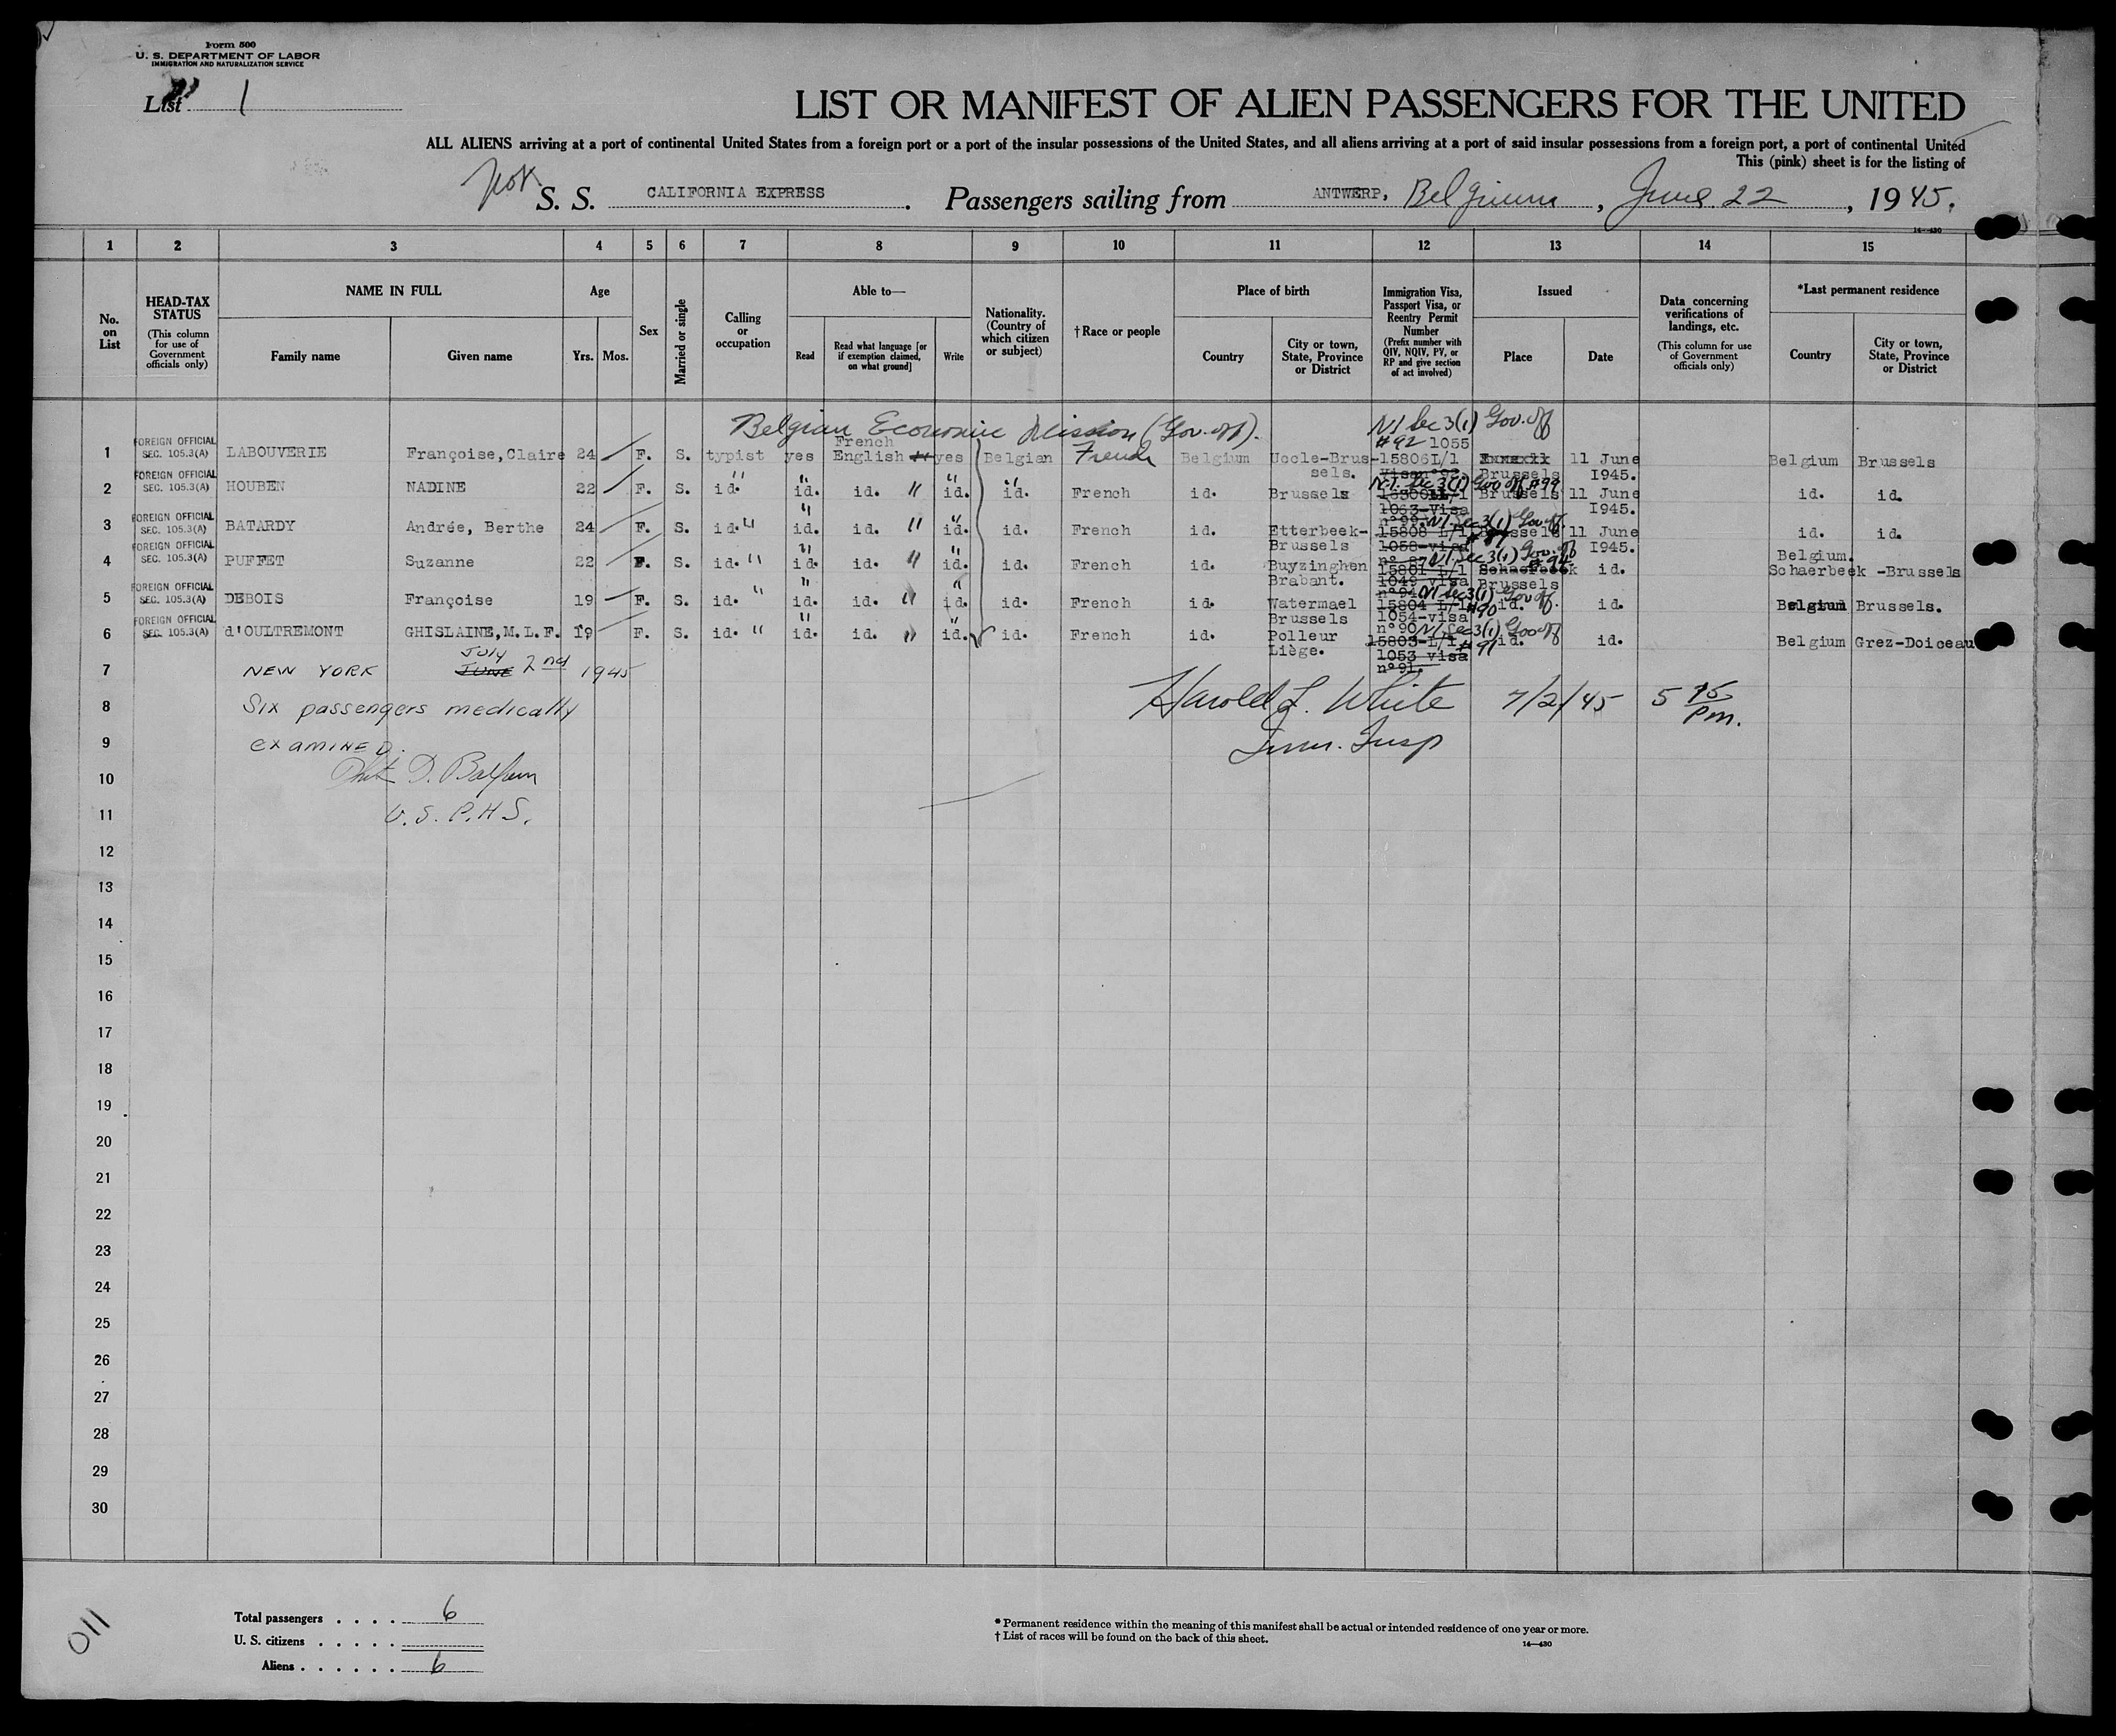 Form 500
U. S. DEPARTMENT OF LABOR
IMMIGRATION AND NATURALIZATION SERVICE
List 1
LIST OR MANIFEST OF ALIEN PASSENGERS FOR THE UNITED
ALL ALIENS arriving at a port of continental United States from a foreign port or a port of the insular possessions of the United States, and all aliens arriving at a port of said insular possessions from a foreign port, a port of continental United
This (pink) sheet is for the listing of
S. S. CALIFORNIA EXPRESS. Passengers sailing from ANTWERP, Belgium, June 22, 1945.
14—430
1 2 3 4 5 6 7 8 9 10 11 12 13 14 15
No. on List
HEAD-TAX STATUS (This column for use of Government officials only)
NAME IN FULL
Family name
Given name
Age
Yrs.
Mos.
Sex
Married or single
Calling or occupation
Able to—
Read
Read what language [or if exemption claimed, on what ground]
Write
Nationality. (Country of which citizen or subject)
†Race or people
Place of birth
Country
City or town, State, Province or District
Immigration Visa, Passport Visa, or Reentry Permit Number (Prefix number with QIV, NQIV, PV, or RP and give section of act involved)
Issued
Place
Date
Data concerning verifications of landings, etc. (This column for use of Government officials only)
*Last permanent residence
Country
City or town, State, Province or District
Belgian Economic Mission (Gov. off). NI Sec 3(1) Gov. off
1 FOREIGN OFFICIAL SEC. 105.3(A) LABOUVERIE Françoise,Claire 24 F. S. typist yes French English yes Belgian French Belgium Uccle-Brussels. #92 1055 15806L/1 Visa n°92 Brussels 11 June 1945. Belgium Brussels
2 FOREIGN OFFICIAL SEC. 105.3(A) HOUBEN NADINE 22 F. S. id. " id. " id. " id. " id. " French id. Brussels N.I. Sec 3(1) Gov off #99 1063-Visa n°99 Brussels 11 June 1945. id. id.
3 FOREIGN OFFICIAL SEC. 105.3(A) BATARDY Andrée, Berthe 24 F. S. id. " id. " id. " id. " id. French id. Etterbeek-Brussels NI Sec 3(1) Gov off 15808 L/1 #87 1058-visa n° 87 Brussels 11 June 1945. id. id.
4 FOREIGN OFFICIAL SEC. 105.3(A) PUFFET Suzanne 22 F. S. id. " id. " id. " id. " id. French id. Buyzinghen Brabant. NI Sec 3(1) Gov. off #94 15801 L/1 1049 visa n°94 Schaerbeek Brussels id. Belgium. Schaerbeek -Brussels
5 FOREIGN OFFICIAL SEC. 105.3(A) DEBOIS Françoise 19 F. S. id. " id. " id. " id. " id. French id. Watermael Brussels NI Sec 3(1) Gov off. 15804 L/1 #90 1054-visa n°90 id. id. Belgium Brussels.
6 FOREIGN OFFICIAL SEC. 105.3(A) d'OULTREMONT GHISLAINE,M.L.F. 19 F. S. id. " id. " id. " id. " id. French id. Polleur Liège. NI Sec 3(1) Gov off 15803-L/1 #91 1053 visa n°91. id. id. Belgium Grez-Doiceau
7 NEW YORK JUNE July 2nd 1945
8 Six passengers medically Harold L. White 7/2/45 5 15 Pm.
9 examined. Imm. Insp
10
11 U. S. P. H S.
12
13
14
15
16
17
18
19
20
21
22
23
24
25
26
27
28
29
30
Total passengers . . . . 6
U. S. citizens . . . . .
Aliens . . . . . . 6
011
* Permanent residence within the meaning of this manifest shall be actual or intended residence of one year or more.
† List of races will be found on the back of this sheet.
14—430